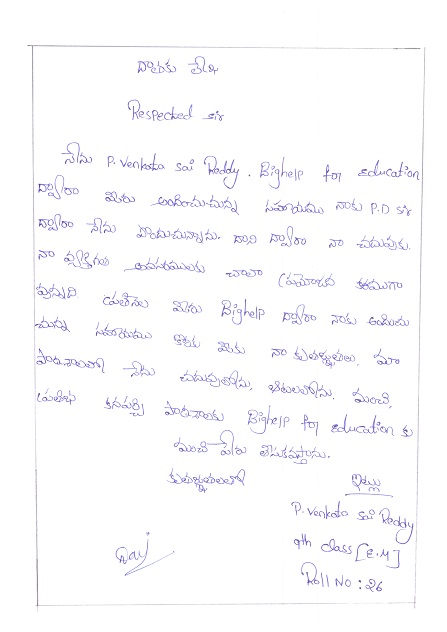 దాతకు లేఖ
Respected sir
నేను P. Venkata sai Reddy. Bighelp for education
ద్వారా మీరు అందించుచున్న సహాయము నాకు P.D sir
ద్వారా నేను పొందుచున్నాను. దాని ద్వారా నా చదువుకు,
నా వ్యక్తిగత అవసరములకు చాలా ప్రయోజన కరముగా
వున్నది ప్రతినెల మీరు Bighelp ద్వారా నాకు అందించు
చున్న సహాయము కొరకు మీకు నా కృతజ్ఞతలు, మా
పాఠశాలలో నేను చదువులోను, ఆటలలోను, మంచి
ప్రతిభ కనపర్చి పాఠశాలకు Bighelp for education కు
మంచి పేరు తీసుకవస్తాను.
కృతజ్ఞతలతో
ఇట్లు
P. Venkata sai Reddy
9th class [E.M]
Roll No : 26